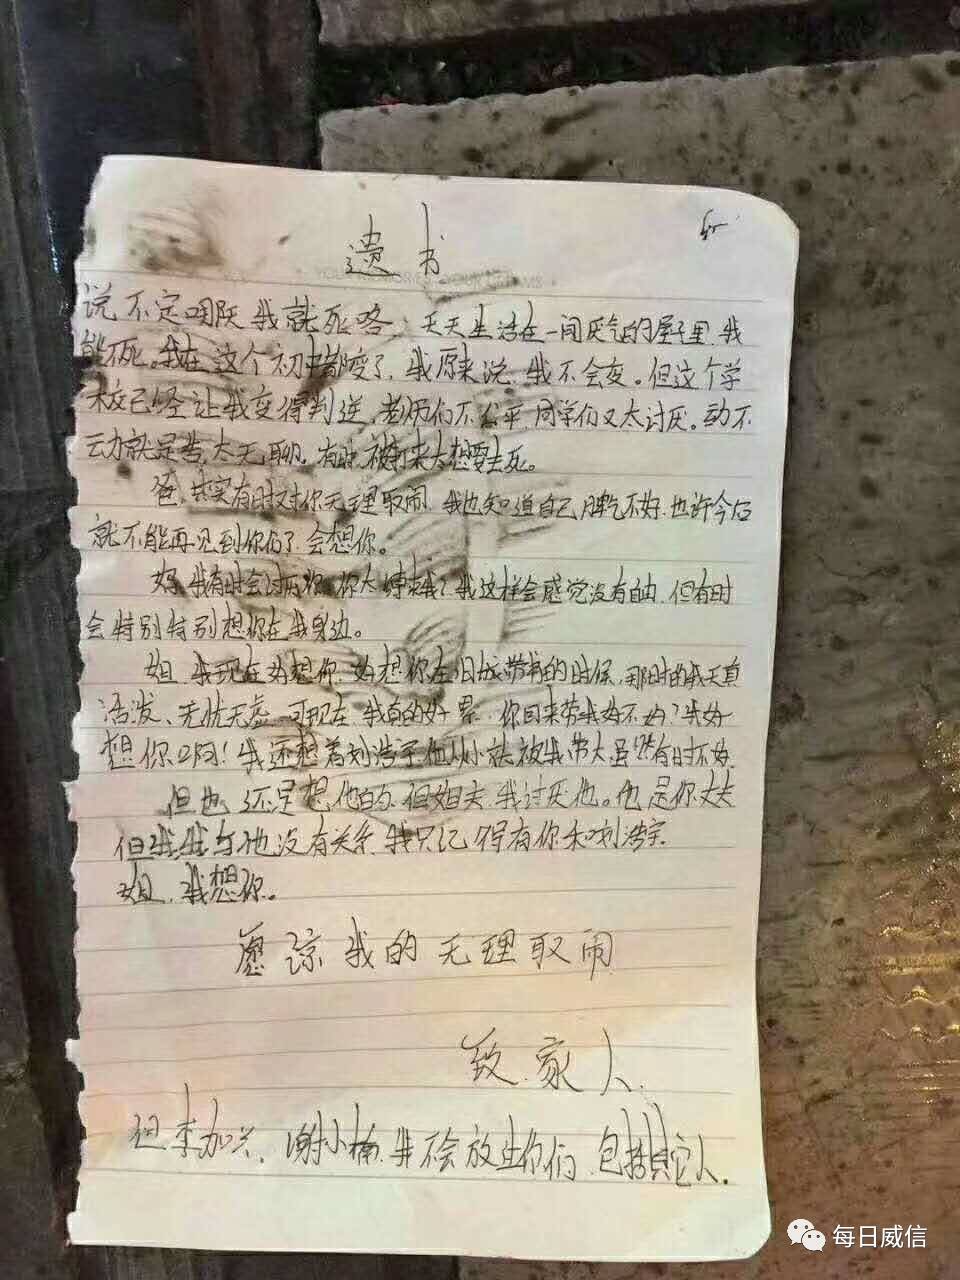 遗书
说不定哪天我就死咯，天天生活在一间厌气的屋子里，我
能不死。我在这个初中都变了，我原来说，我不会变。但这个学
校已经让我变得判逆，老师们不公平，同学们又太讨厌。动不
动就是告，太无聊。有时，被打来太想要去死。
爸，其实有时对你无理取闹，我也知道自己脾气不好，也许今后
就不能再见到你们了，会想你。
妈，我有时会讨厌你，你太缚束我了，我这样会感觉没有自由，但有时
会特别特别想你在我身边。
姐，我现在好想你，好想你在旧城带我的时候，那时的我天真
活发、无忧无虑，可现在，我真的好累，你回来带我好不好？我好
想你啊！我还想着刘浩宇，他从小就被我带大虽然有时不好，
但也还是想他的，但姐夫，我讨厌他。他是你丈夫
但我与他没有关系，我只记得有你和刘浩宇
姐，我想你。
愿谅我的无理取闹
致家人
但李加兴，谢小楠，我不会放过你们，包括其它人。
每日威信